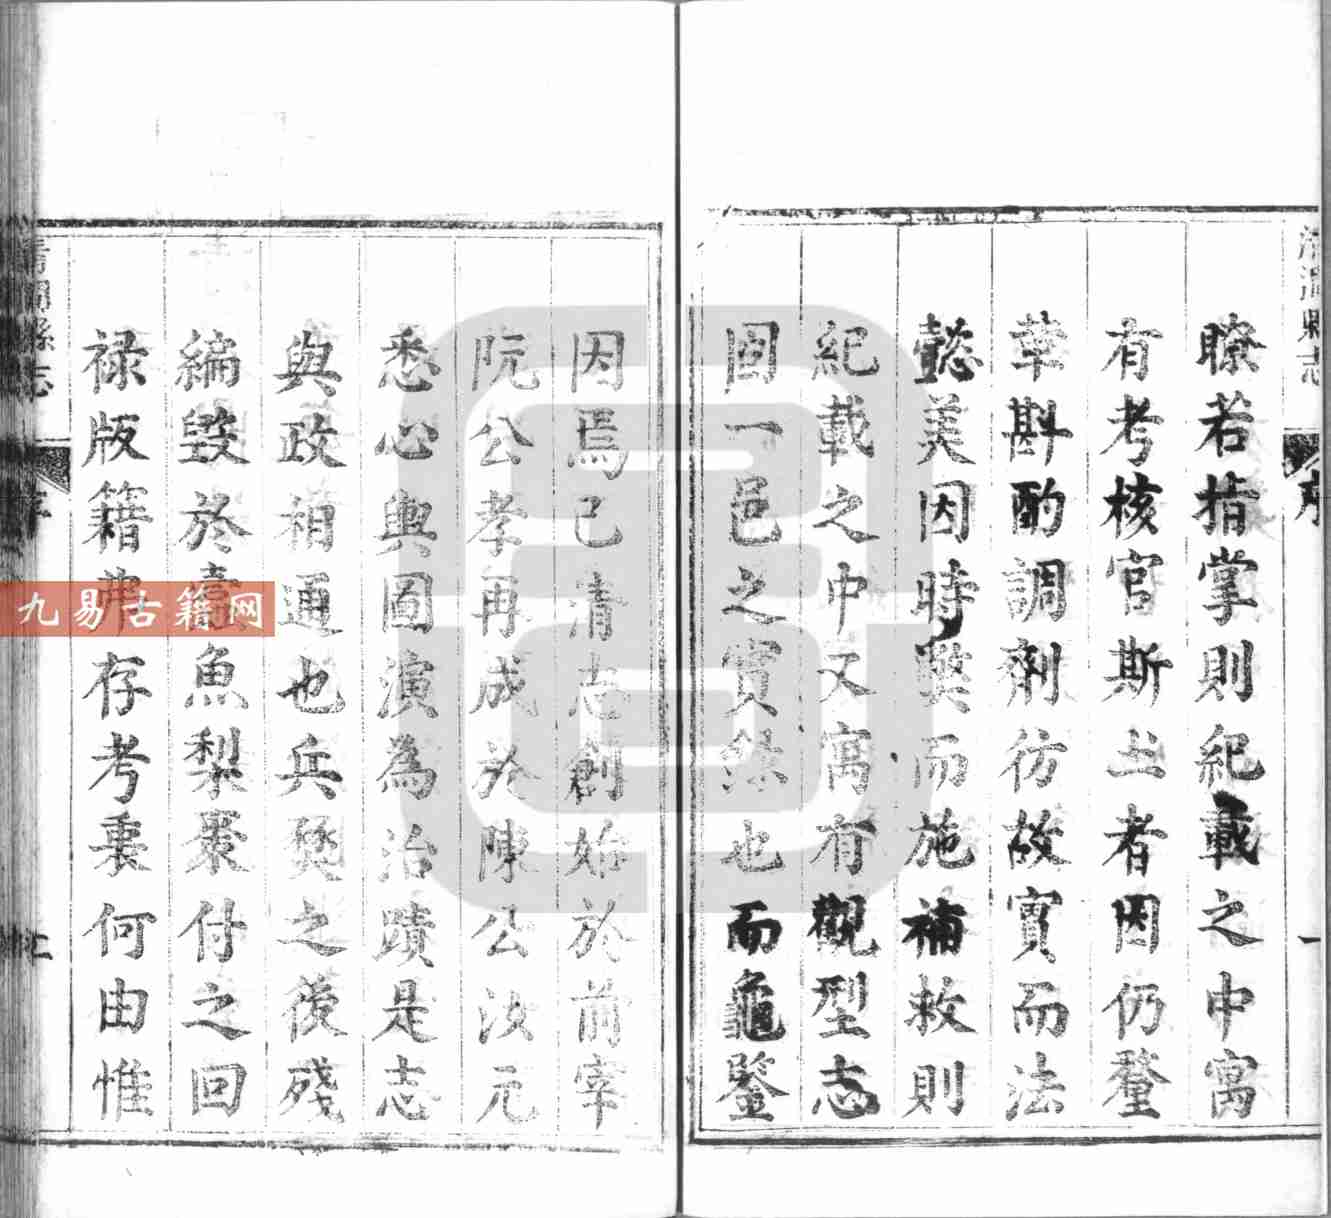 清澗縣志
序
一
瞭若指掌則紀載之中寓
有考核官斯土者因仍釐
革斟酌調劑彷故實而法
懿美因時弊而施補救則
紀載之中又寓有觀型志
固一邑之實錄也而龜鑒
因焉已清志創始於前宰
阮公孝再成於陳公汝元
悉心輿圖演為治蹟是志
與政相通也兵燹之後殘
編毀於蠹魚梨棗付之回
祿版籍弗存考衷何由惟
清澗縣志
序
九易古籍网